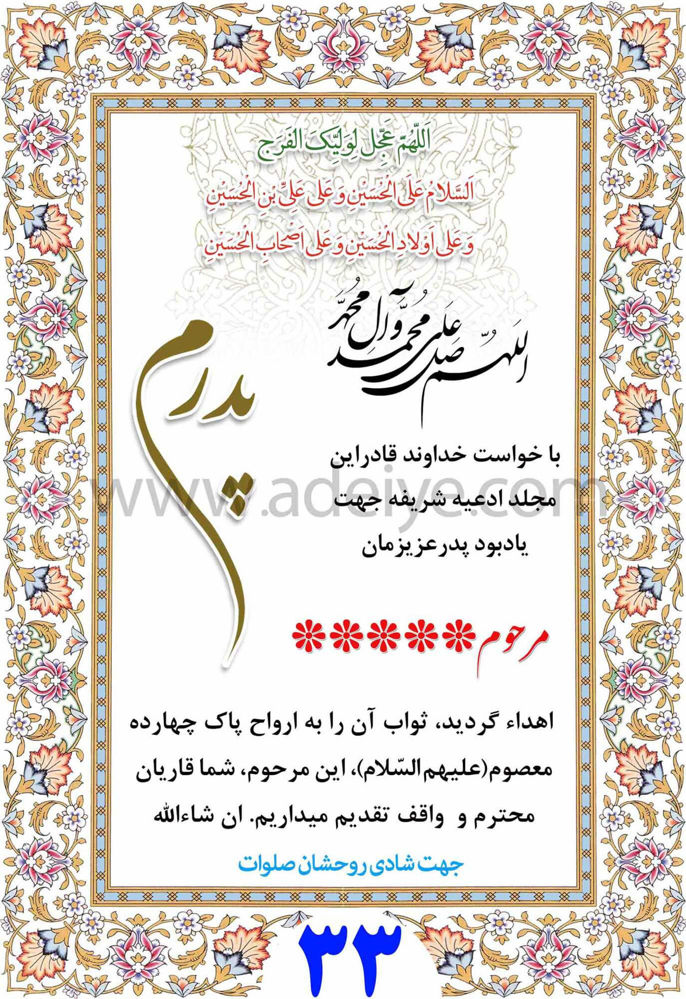 اَللّهُمَّ عَجِّل لِوَلیِّکَ الفَرَج
اَلسَّلامُ عَلَی الْحُسَیْنِ وَ عَلی عَلِیِّ بْنِ الْحُسَیْنِ
وَ عَلی اَوْلادِ الْحُسَیْنِ وَ عَلی اَصْحابِ الْحُسَیْنِ
اللهم صل علی محمد و آل محمد
پدرم
با خواست خداوند قادر این
مجلد ادعیه شریفه جهت
یادبود پدر عزیزمان
www.adeiye.com
مرحوم ✽✽✽✽✽
اهداء گردید، ثواب آن را به ارواح پاک چهارده
معصوم(علیهم السّلام)، این مرحوم، شما قاریان
محترم و واقف تقدیم میداریم. ان شاءالله
جهت شادی روحشان صلوات
۳۳